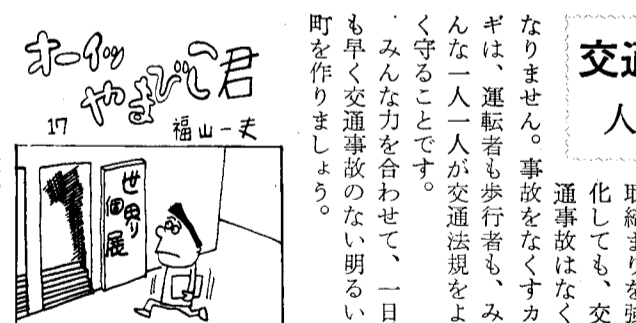 交通
人
取締まりを強
化しても、交
通事故はなく
なりません。事故をなくすカ
ギは、運転者も歩行者も、み
んな一人一人が交通法規をよ
く守ることです。
みんな力を合わせて、一日
も早く交通事故のない明るい
町を作りましょう。
オーイッ
やまびこ君
17
福山一丈
個展